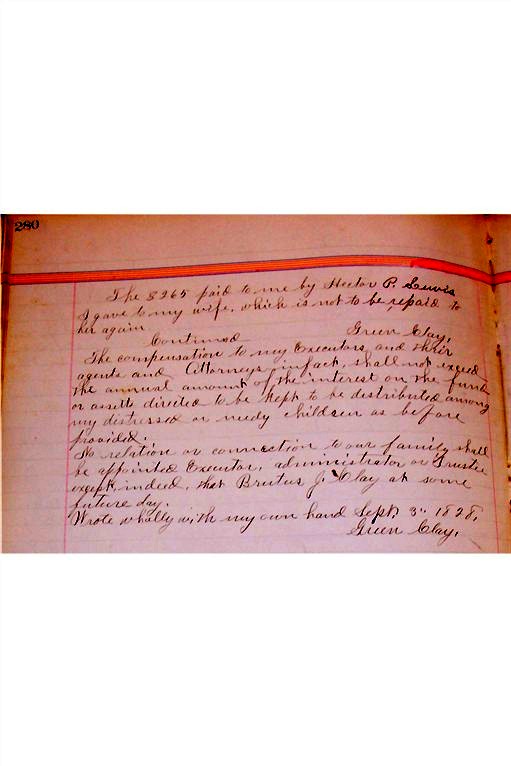 280
The $265 paid to me by Hector P. Lewis
I gave to my wife, which is not to be repaid to
her again.
Green Clay,
Continued
The compensation to my Executors, and their
agents and Attorneys in fact, shall not exceed
the annual amount of the interest on the funds
or assets divided to be kept to be distributed among
my distressed or needy children as before
provided.
No relation or connection to our family shall
be appointed Executor, administrator or Trustee
except, indeed, that Brutus J. Clay at some
future day.
Wrote wholly with my own hand Sept. 3" 1828.
Green Clay.